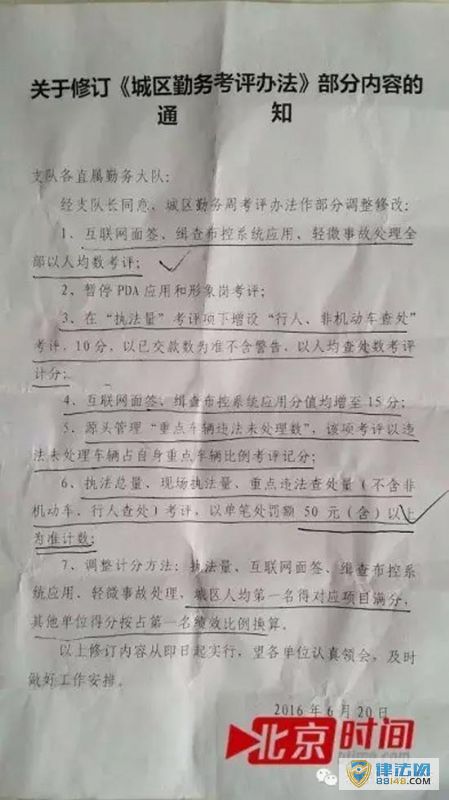 关于修订《城区勤务考评办法》部分内容的
通 知
支队各直属勤务大队：
经支队长同意、城区勤务周考评办法作部分调整修改：
1、互联网面签、缉查布控系统应用、轻微事故处理全
部以人均数考评；
2、暂停PDA应用和形象岗考评；
3、在“执法量”考评项下增设“行人、非机动车查处”
考评，10分，以已交款数为准不含警告，以人均查处数考评
计分；
4、互联网面签、缉查布控系统应用分值均增至15分；
5、源头管理“重点车辆违法未处理数”，该项考评以违
法未处理车辆占自身重点车辆比例考评记分；
6、执法总量、现场执法量、重点违法查处量（不含非
机动车、行人查处）考评，以单笔处罚额50元（含）以上
为准计数；
7、调整计分方法：执法量、互联网面签、缉查布控系
统应用、轻微事故处理，城区人均第一名得对应项目满分，
其他单位得分按占第一名绩效比例换算。
以上修订内容从即日起实行，望各单位认真领会，及时
做好工作安排。
2016年6月20日
北京时间
btime.com
律法网
89148.com